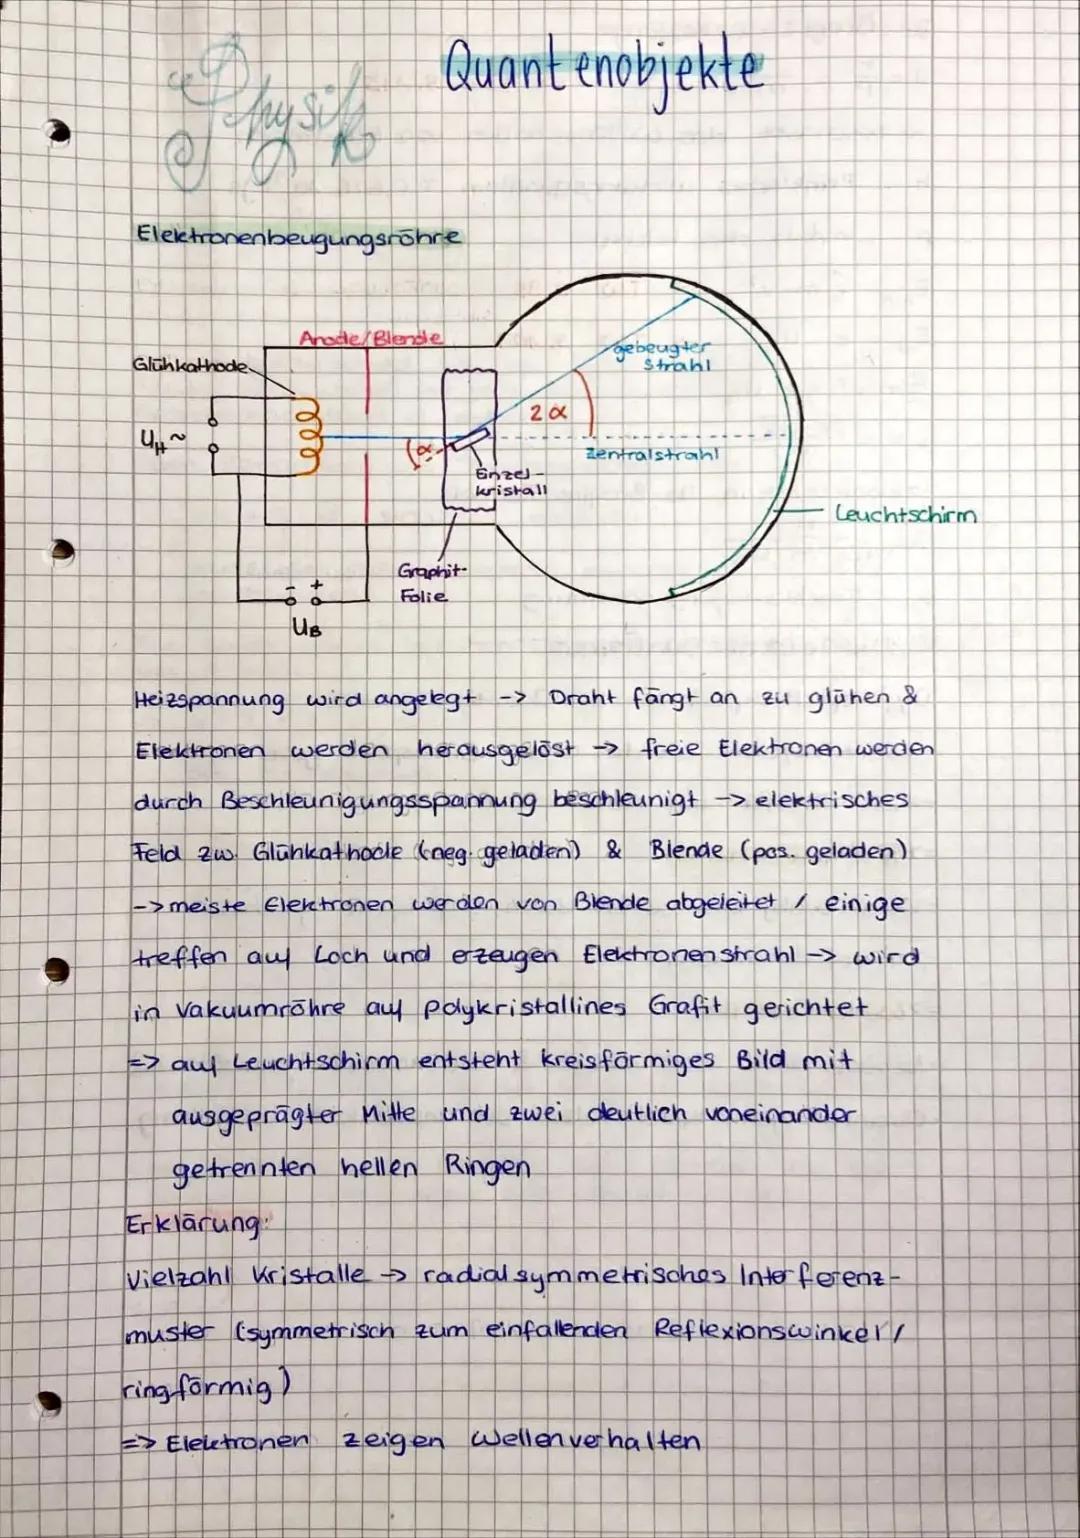 Physik
Quantenobjekte
Elektronenbeugungsröhre
Anode/Blende
Glühkathode
gebeugter
Strahl
2α
U_H ~
(α
Zentralstrahl
Einzel-
kristall
Leuchtschirm
Graphit-
Folie
- +
U_B
Heizspannung wird angelegt -> Draht fängt an zu glühen &
Elektronen werden herausgelöst -> freie Elektronen werden
durch Beschleunigungsspannung beschleunigt -> elektrisches
Feld zw. Glühkathode (neg. geladen) & Blende (pos. geladen)
-> meiste Elektronen werden von Blende abgeleitet / einige
treffen auf Loch und erzeugen Elektronenstrahl -> wird
in Vakuumröhre auf polykristallines Grafit gerichtet
=> auf Leuchtschirm entsteht kreisförmiges Bild mit
ausgeprägter Mitte und zwei deutlich voneinander
getrennten hellen Ringen
Erklärung:
Vielzahl Kristalle -> radialsymmetrisches Interferenz-
muster (symmetrisch zum einfallenden Reflexionswinkel /
ringförmig)
=> Elektronen zeigen Wellenverhalten